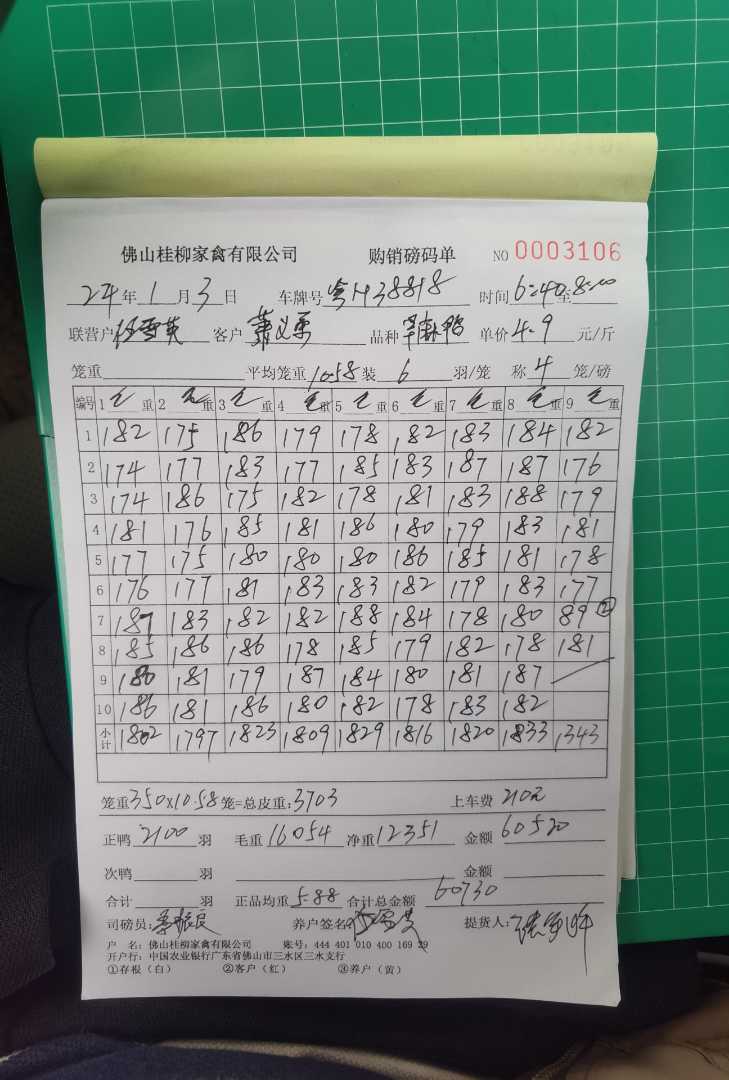 佛山桂柳家禽有限公司 购销磅码单 NO 0003106
24年 1 月 3 日 车牌号 H38818 时间 6:40至8:00
联营户 雪英 客户 萧义勇 品种 单价 4.9 元/斤
笼重 平均笼重 10.58 装 6 羽/笼 称 4 笼/磅
编号 1 毛重 2 毛重 3 毛重 4 毛重 5 毛重 6 毛重 7 毛重 8 毛重 9 毛重
1 182 175 186 179 178 182 183 184 182
2 174 177 183 177 185 183 187 187 176
3 174 186 175 182 178 181 183 188 179
4 181 176 185 181 186 180 179 183 181
5 177 175 180 180 180 186 185 181 178
6 176 177 181 183 183 182 179 183 177
7 187 183 182 182 188 184 178 180 89 ②
8 185 186 186 178 185 179 182 178 181
9 180 181 179 187 184 180 181 187
10 186 181 186 180 182 178 183 182
小计 1802 1797 1823 1809 1829 1816 1820 1833 1343
笼重 350×10.58 笼=总皮重: 3703 上车费 210元
正鸭 2100 羽 毛重 16054 净重 12351 金额 60520
次鸭 羽 金额
合计 羽 正品均重 5.88 合计总金额 60730
司磅员: 养户签名: 提货人:
户 名: 佛山桂柳家禽有限公司 账号: 444 401 010 400 169 29
开户行: 中国农业银行广东省佛山市三水区三水支行
①存根（白） ②客户（红） ③养户（黄）